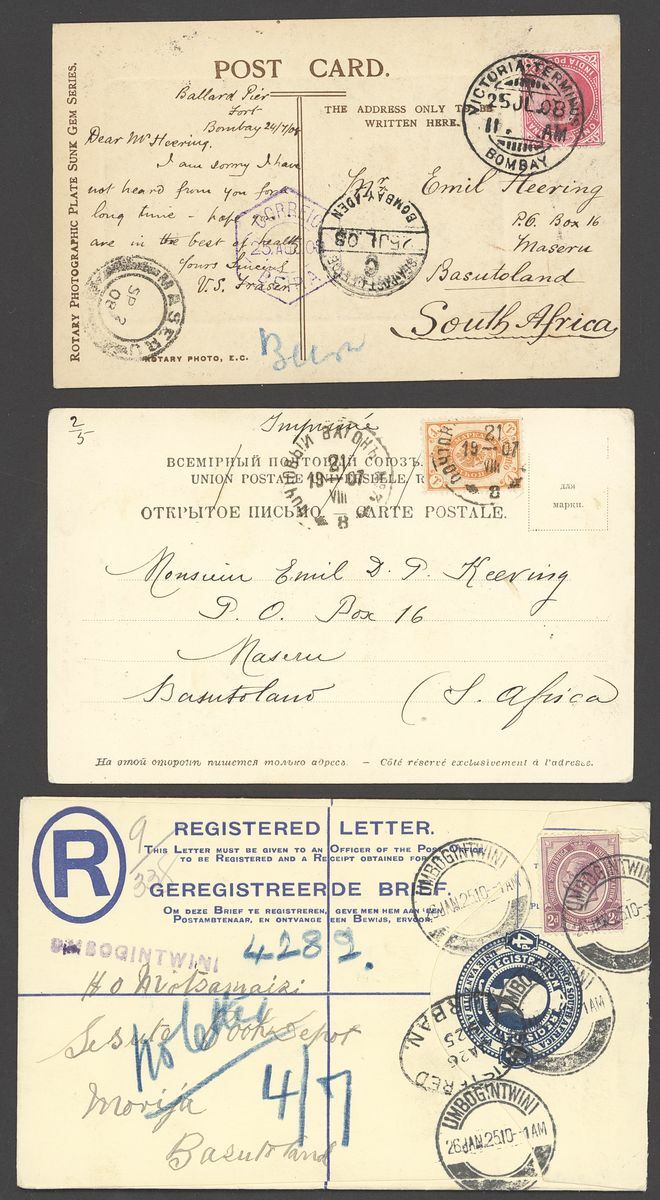 ROTARY PHOTOGRAPHIC PLATE SUNK GEM SERIES.
POST CARD.
THE ADDRESS ONLY TO BE
WRITTEN HERE.
Ballard Pier
Fort
Bombay 24/7/08
Dear Mr Heering,
I am sorry I have
not heard from you for a
long time - hope
are in the best of health
Yours Sincerely
V.S. Fraser
VICTORIA-TERMINUS
25 JL.08
11. AM
BOMBAY
INDIA POSTAGE
Mr Emil Heering
P.O. Box 16
Maseru
Basutoland
South Africa
CORREIO
25 AGO 08
BEIRA
BOMBAY-ADEN
25 JL.08
C
SEA POST OFFICE
MASERU
SP 2
08
ROTARY PHOTO, E.C.
Beira
2/5
Imprimé
ВСЕМІРНЫЙ ПОЧТОВЫЙ СОЮЗЪ.
UNION POSTALE UNIVERSELLE. R
ОТКРЫТОЕ ПИСЬМО — CARTE POSTALE.
ПОЧТОВЫЙ ВАГОНЪ
21
19 07
VIII
8
ПОЧТОВ
21
19 07
VIII
8
для
марки.
Monsieur Emil D. P. Keering
P. O. Box 16
Maseru
Basutoland (S. Africa
На этой сторонѣ пишется только адресъ. — Côté réservé exclusivement à l'adresse.
R
9/338
REGISTERED LETTER.
THIS LETTER MUST BE GIVEN TO AN OFFICER OF THE POST OFFICE
TO BE REGISTERED AND A RECEIPT OBTAINED FOR
GEREGISTREERDE BRIEF.
OM DEZE BRIEF TE REGISTREREN, GEVE MEN HEM AAN EEN
POSTAMBTENAAR, EN ONTVANGE EEN BEWIJS, ERVOOR.
UMBOGINTWINI
4289.
UMBOGINTWINI
26 JAN.25 10-1AM
UMBOGINTWINI
JAN.25 10-
2d
4d
REGISTRATION
REGISTERED
DURBAN
Sesuto Book Depot
Morija
Basutoland
no letter
4/7
UMBOGINTWINI
26 JAN.25 10-1AM